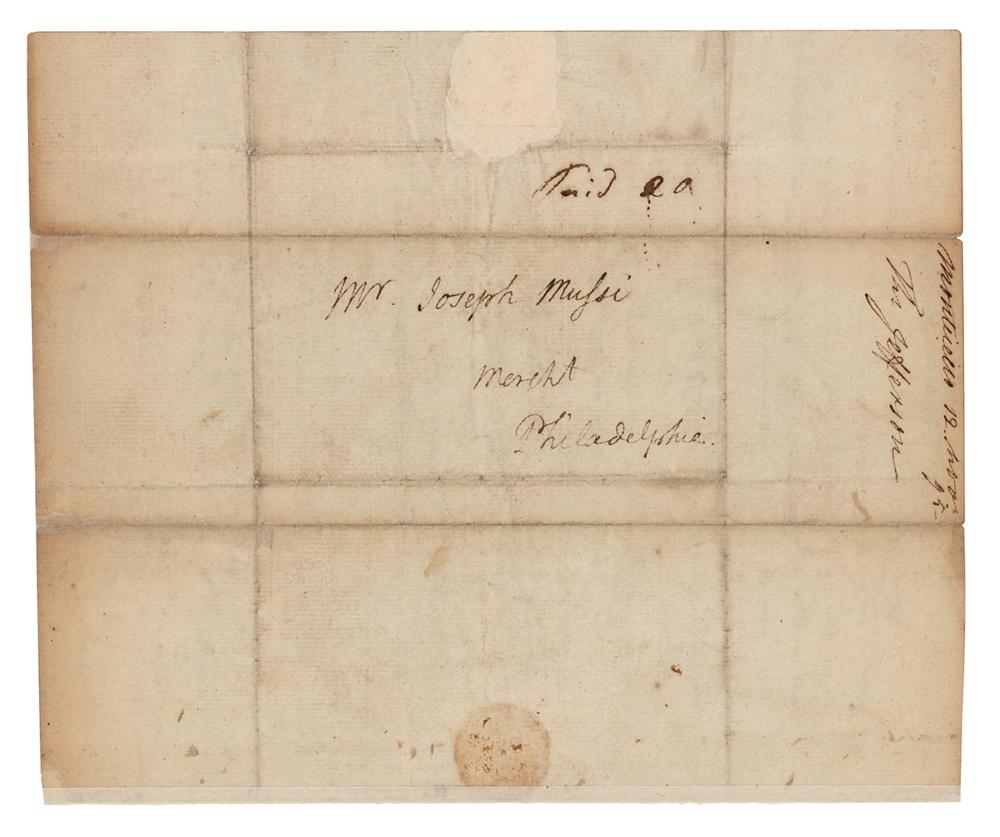 Paid 20
Mr. Joseph Mussi
Mercht
Philadelphia.
Monticello 12.
95
Tho Jefferson